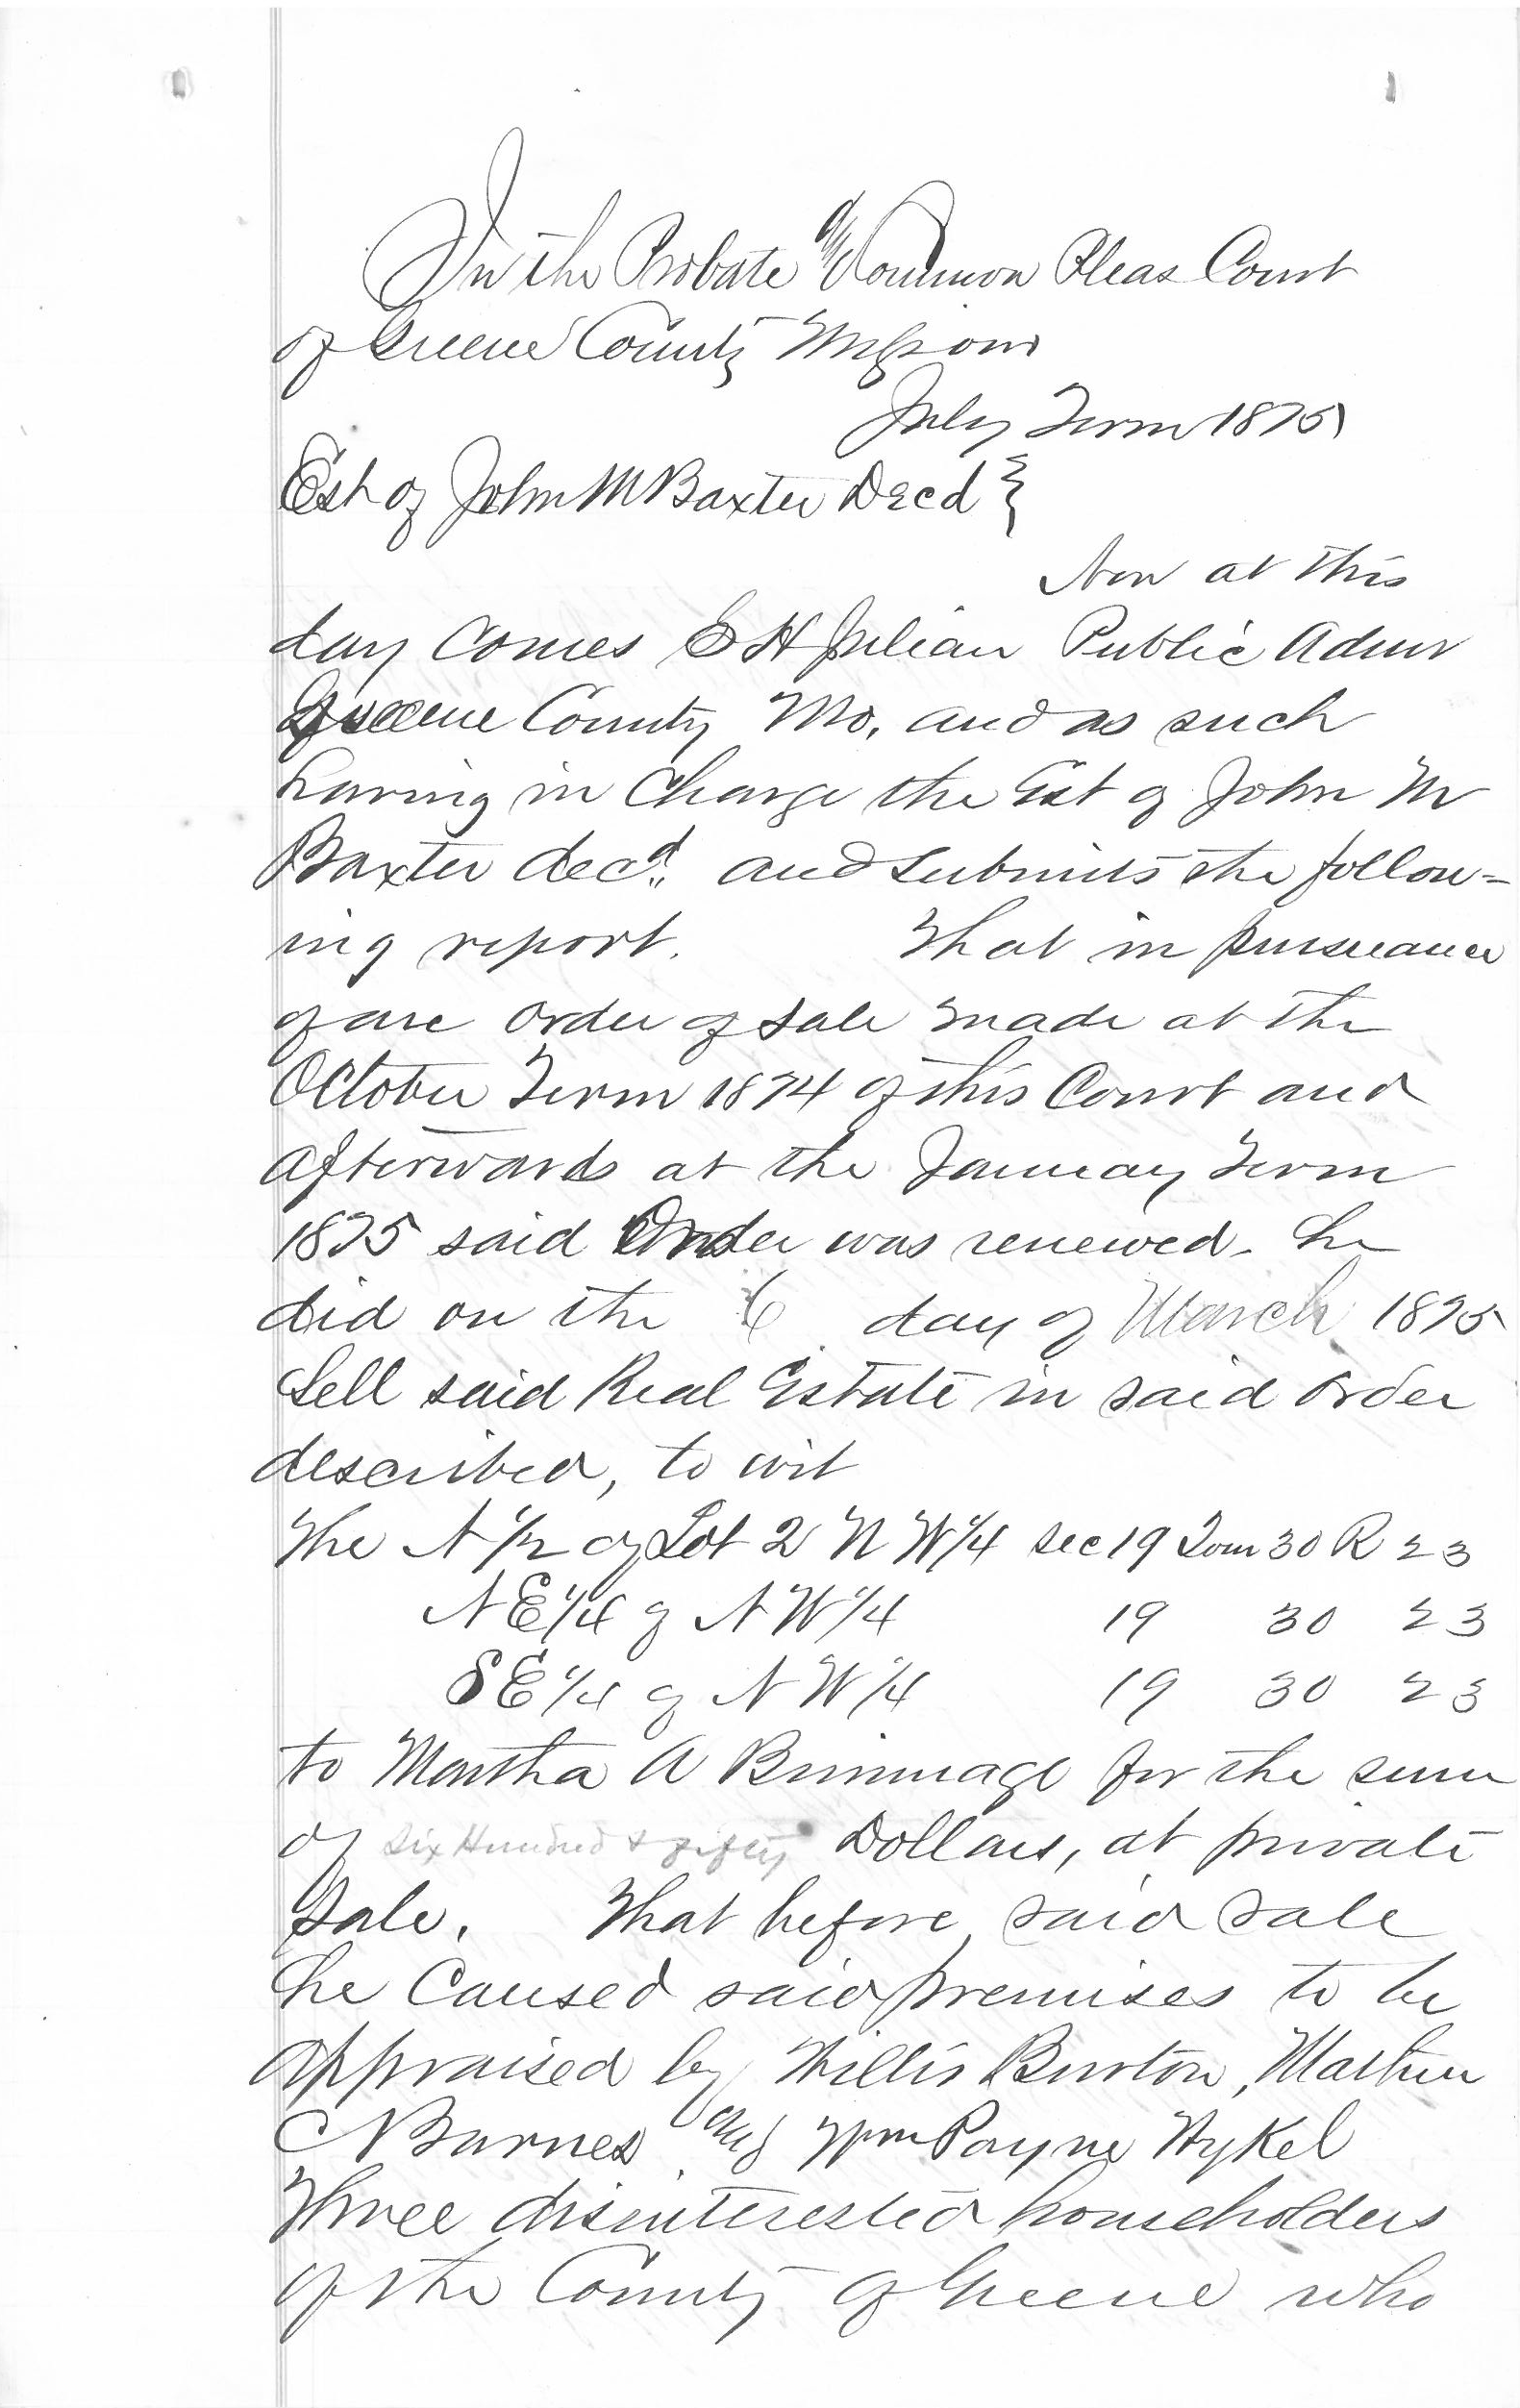 In the Probate & Common Pleas Court
of Greene County Missouri
July Term 1875
Est of John M Baxter Decd }
Now at this
day Comes E H Julian Public Admr
Greene County Mo. and as such
having in Charge the Est of John M
Baxter decd. and submits the follow=
ing report. That in pursuance
of an order of sale made at the
October Term 1874 of this Court and
afterwards at the January Term
1875 said Order was renewed. he
did on the 6 day of March 1875
Sell said Real Estate in said order
described, to wit
The N 1/2 of Lot 2 N W 1/4 Sec 19 Tow 30 R 23
N E 1/4 of N W 1/4 19 30 23
S E 1/4 of N W 1/4 19 30 23
to Martha A Brimmage for the sum
of Six Hundred & fifty Dollars, at private
Sale. That before said sale
he Caused said premises to be
appraised by Willis Burton,
Barnes and Wm Payne Wykel
Three disinterested householders
of the County of Greene who